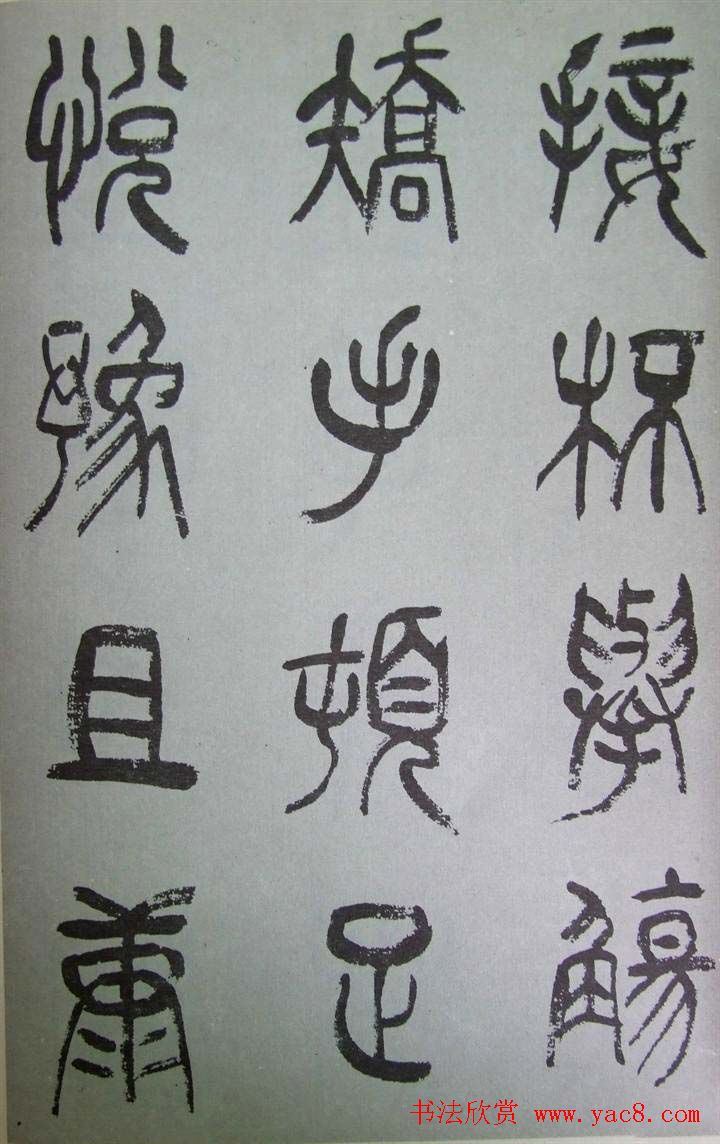 接杯舉觴
矯手頓足
悅豫且康
书法欣赏 www.yac8.com